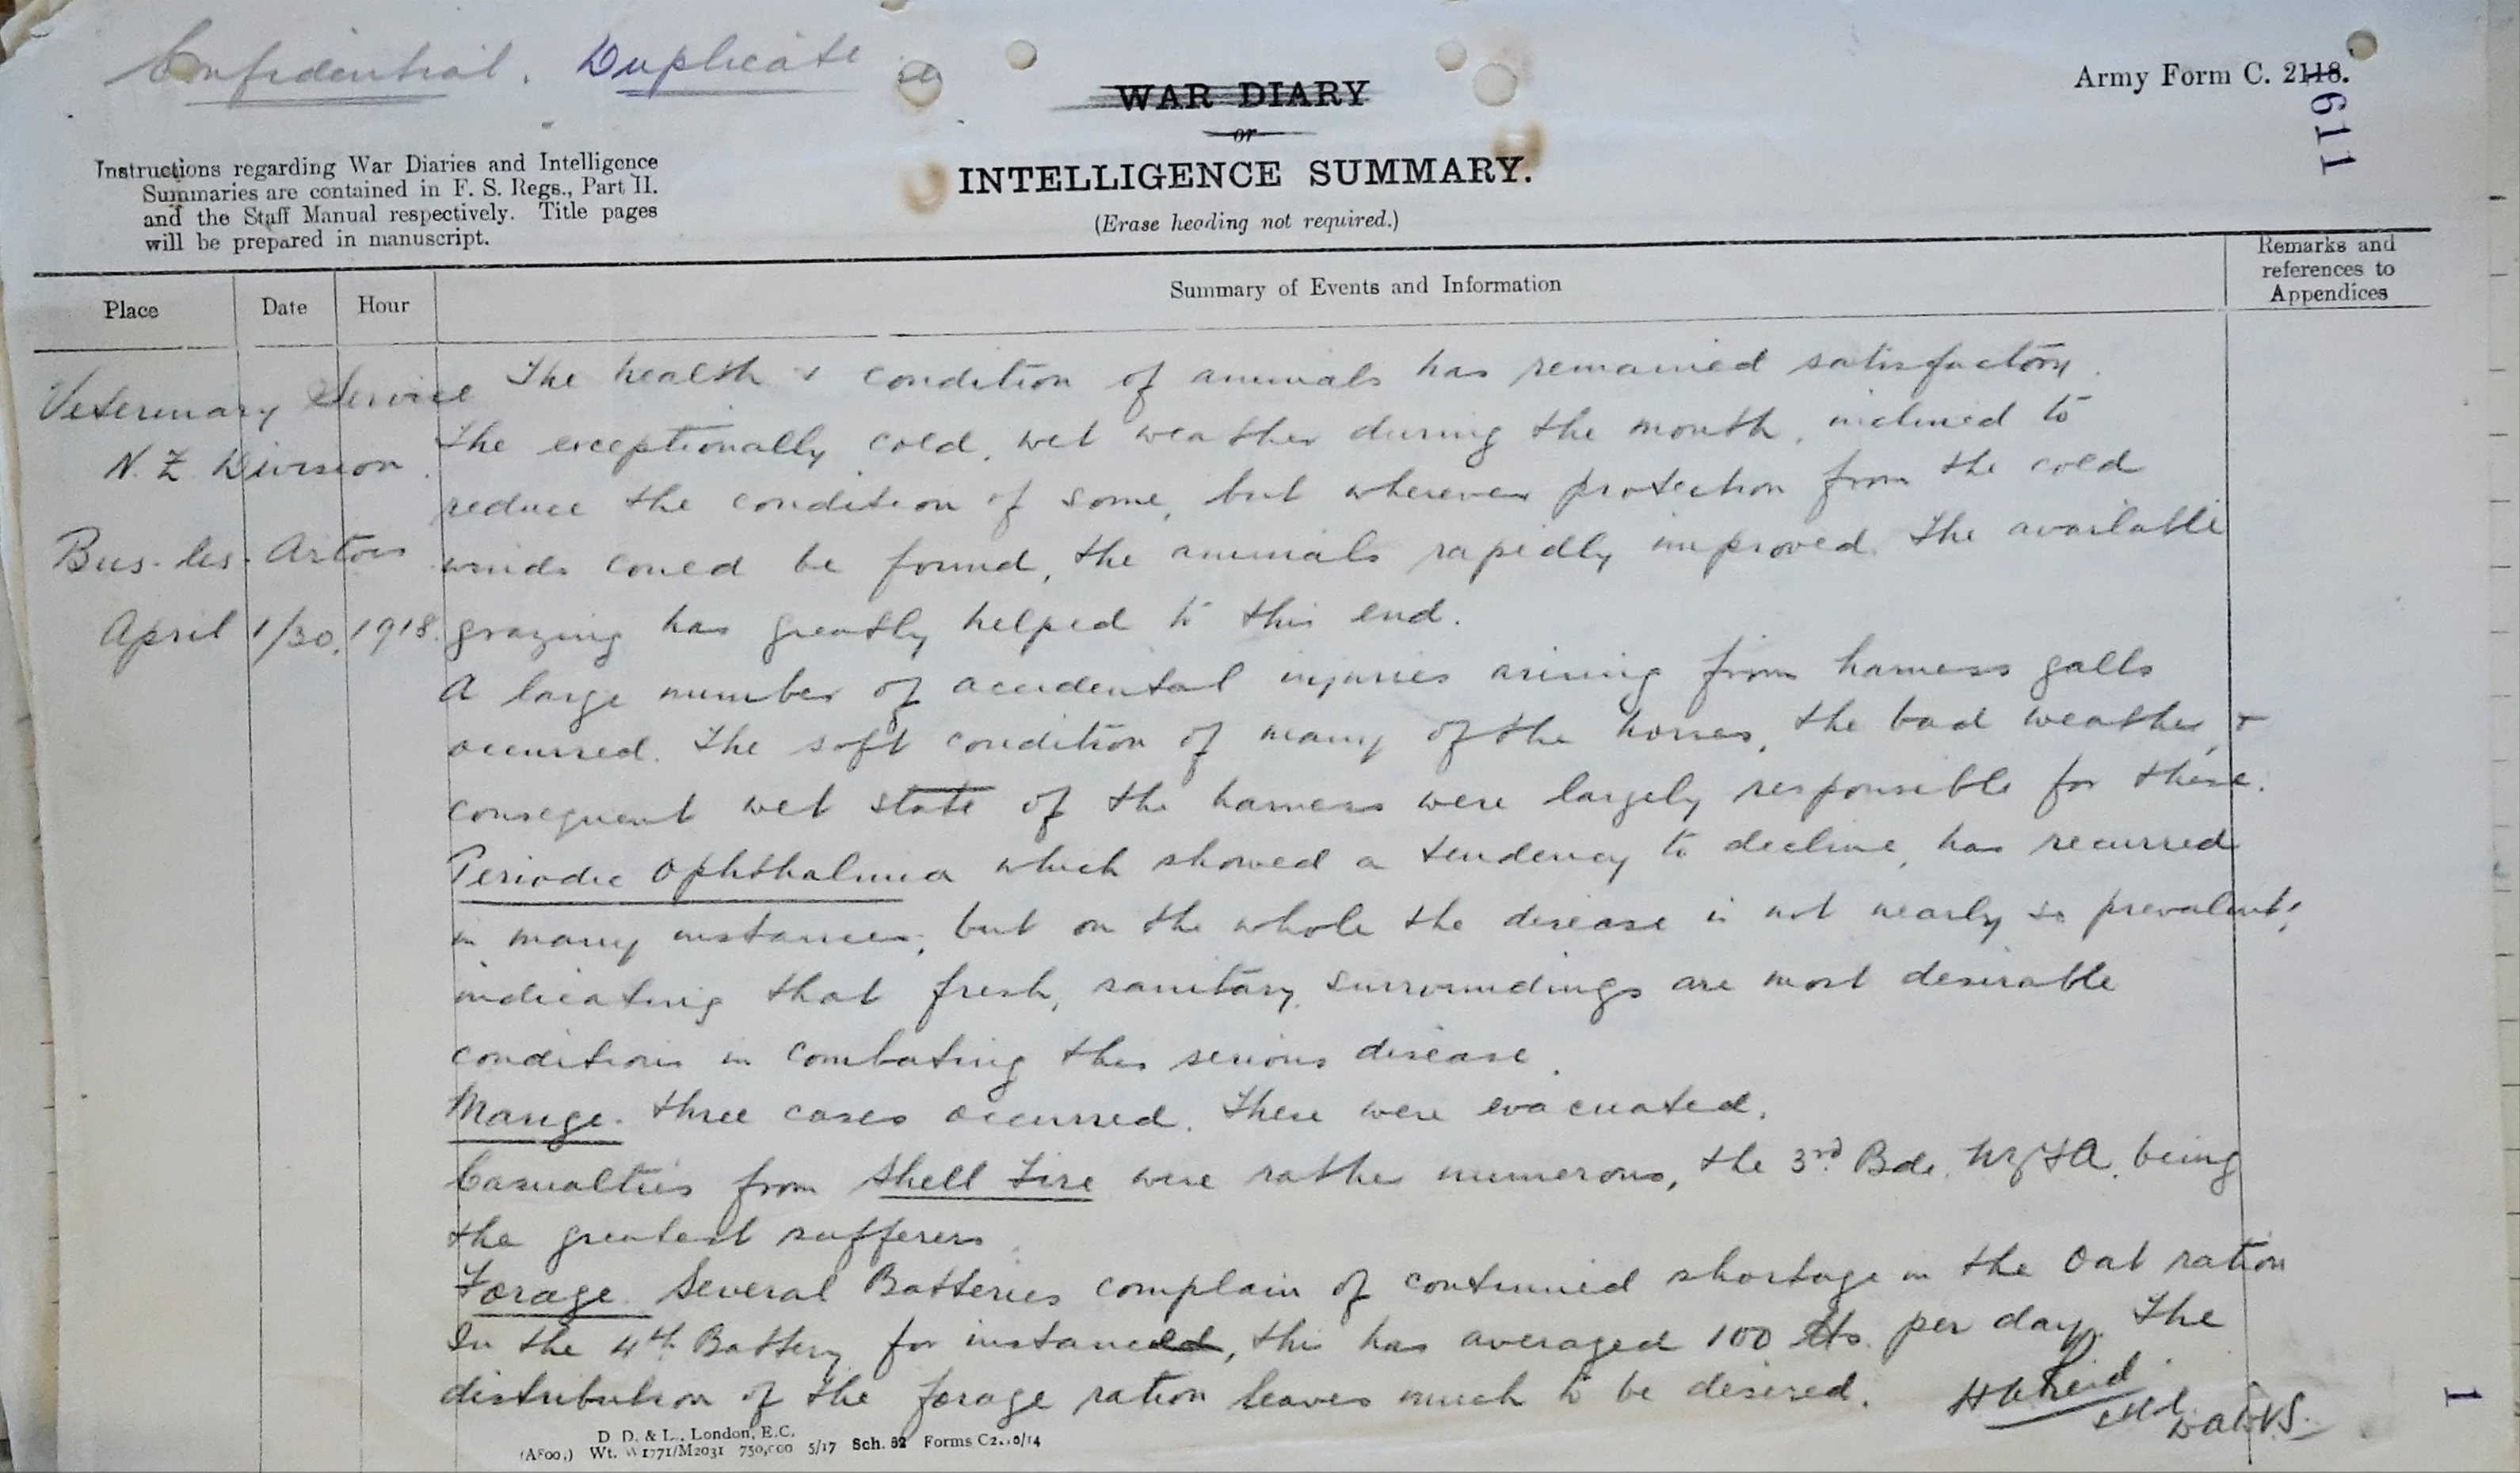 Confidential. Duplicate
WAR DIARY
or
INTELLIGENCE SUMMARY.
(Erase heading not required.)
Army Form C. 2118.
119
Instructions regarding War Diaries and Intelligence
Summaries are contained in F. S. Regs., Part II.
and the Staff Manual respectively. Title pages
will be prepared in manuscript.
Place
Date
Hour
Summary of Events and Information
Remarks and
references to
Appendices
Veterinary Service
N. Z. Division.
Bus-les-Artois
April 1/30, 1918.
The health & condition of animals has remained satisfactory.
The exceptionally cold, wet weather during the month, inclined to
reduce the condition of some, but wherever protection from the cold
winds could be found, the animals rapidly improved. The available
grazing has greatly helped to this end.
A large number of accidental injuries arising from harness galls
occurred. The soft condition of many of the horses, the bad weather, &
consequent wet state of the harness were largely responsible for these.
Periodic Ophthalmia which showed a tendency to decline, has recurred
in many instances, but on the whole the disease is not nearly so prevalent,
indicating that fresh, sanitary surroundings are most desirable
conditions in combating this serious disease.
Mange. Three cases occurred. These were evacuated.
Casualties from Shell Fire were rather numerous, the 3rd Bde. NZFA. being
the greatest sufferers.
Forage. Several Batteries complain of continued shortage in the Oat ration
In the 4th Battery for instance, this has averaged 100 lbs. per day. The
distribution of the forage ration leaves much to be desired.
H A Reid
D.A.D.V.S.
D. D. & L., London, E.C.
Wt. W1771/M2031 750,000 5/17 Sch. 52 Forms
1